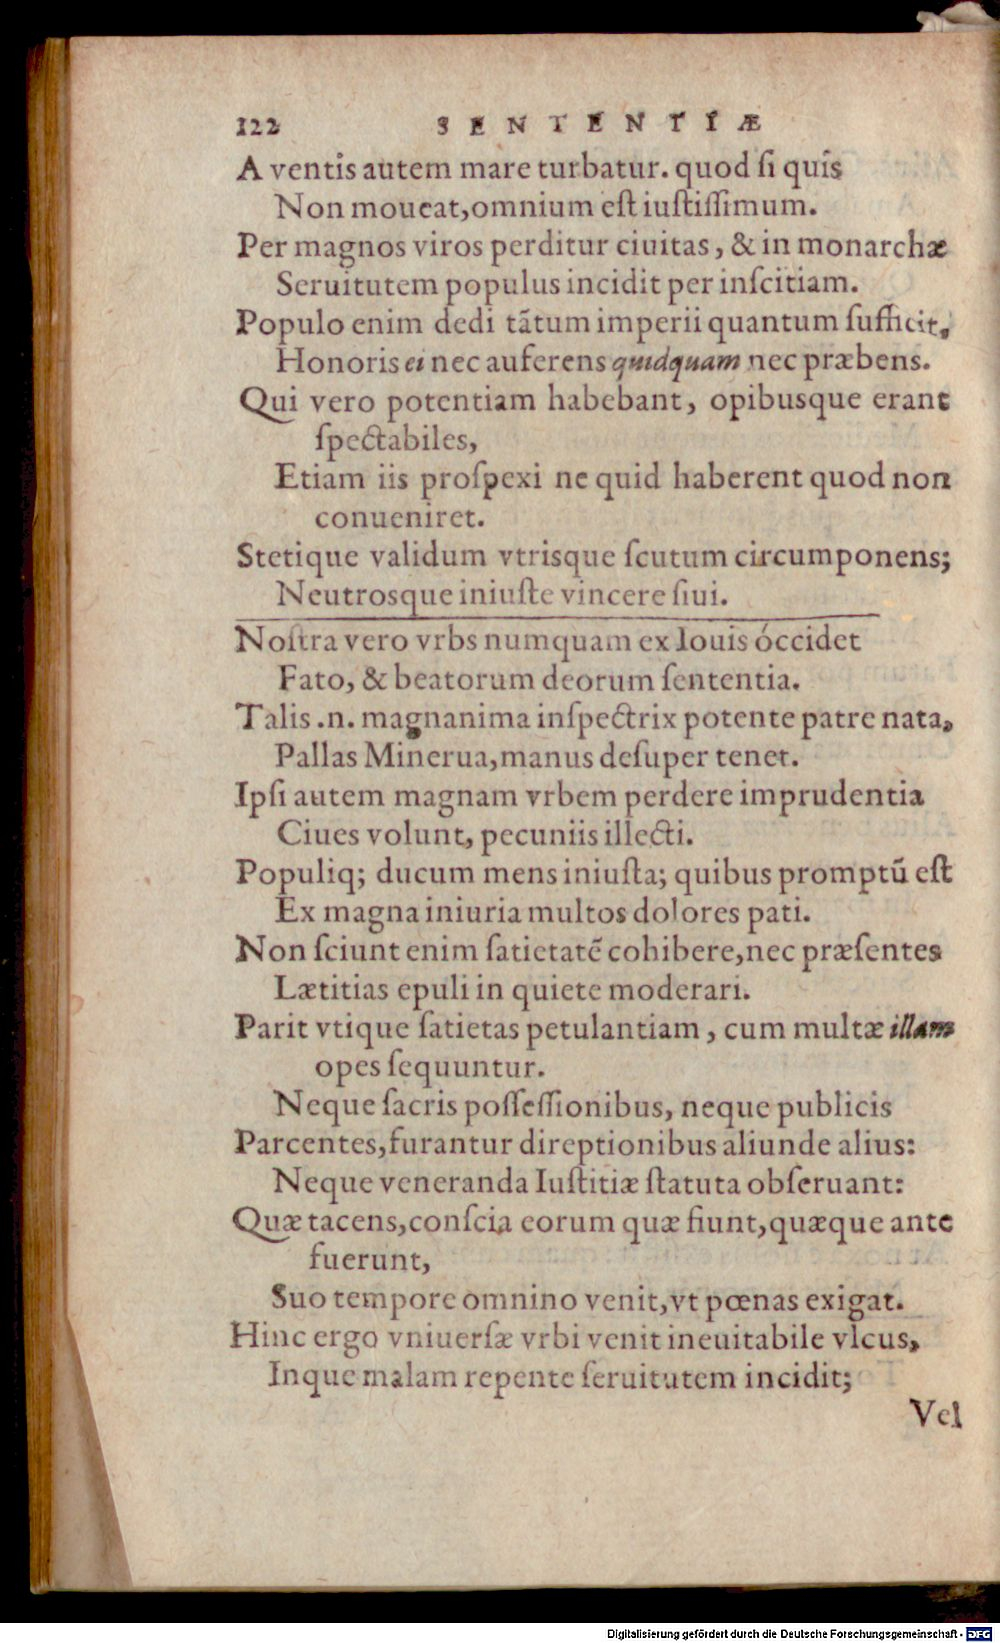 122 SENTENTIÆ
A ventis autem mare turbatur. quod ſi quis
Non moueat, omnium eſt iuſtiſſimum.
Per magnos viros perditur ciuitas, & in monarchæ
Seruitutem populus incidit per inſcitiam.
Populo enim dedi tãtum imperii quantum ſufficit,
Honoris ei nec auferens quidquam nec præbens.
Qui vero potentiam habebant, opibusque erant
ſpectabiles,
Etiam iis proſpexi ne quid haberent quod non
conueniret.
Stetique validum vtrisque ſcutum circumponens;
Neutrosque iniuſte vincere ſiui.
Noſtra vero vrbs numquam ex Iouis óccidet
Fato, & beatorum deorum ſententia.
Talis .n. magnanima inſpectrix potente patre nata,
Pallas Minerua, manus deſuper tenet.
Ipſi autem magnam vrbem perdere imprudentia
Ciues volunt, pecuniis illecti.
Populiq; ducum mens iniuſta; quibus promptũ eſt
Ex magna iniuria multos dolores pati.
Non ſciunt enim ſatietatẽ cohibere, nec præſentes
Lætitias epuli in quiete moderari.
Parit vtique ſatietas petulantiam, cum multæ illam
opes ſequuntur.
Neque ſacris poſſeſſionibus, neque publicis
Parcentes, furantur direptionibus aliunde alius:
Neque veneranda Iuſtitiæ ſtatuta obſeruant:
Quæ tacens, conſcia eorum quæ fiunt, quæque ante
fuerunt,
Suo tempore omnino venit, vt pœnas exigat.
Hinc ergo vniuerſæ vrbi venit ineuitabile vlcus,
Inque malam repente ſeruitutem incidit;
Vel
Digitalisierung gefördert durch die Deutsche Forschungsgemeinschaft - DFG